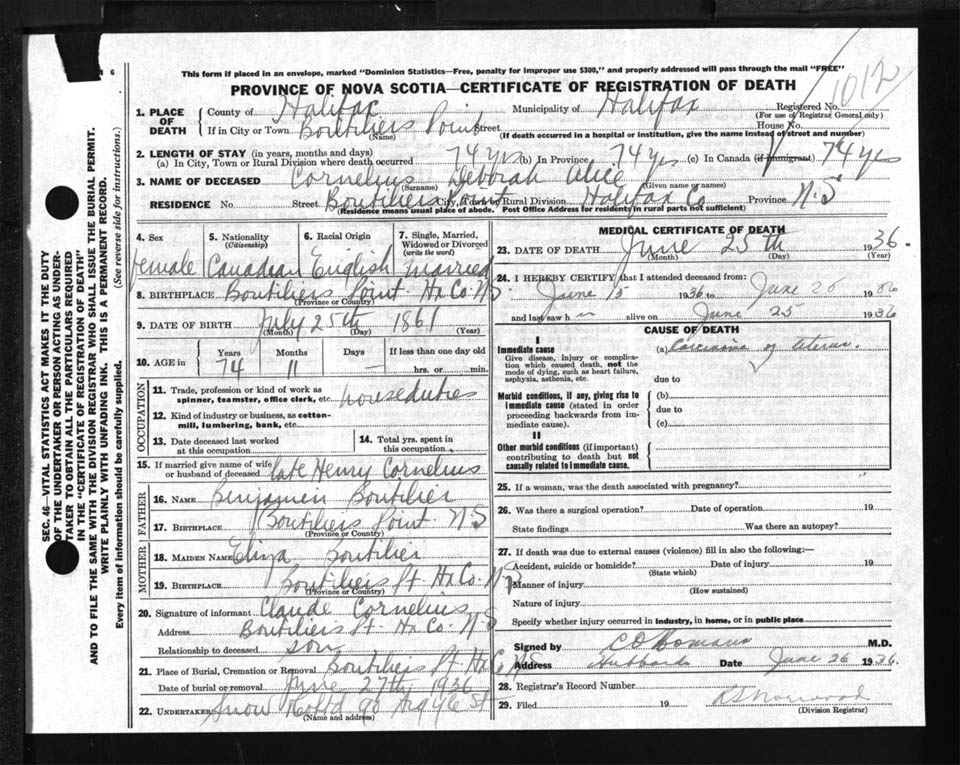 This form if placed in an envelope, marked "Dominion Statistics—Free, penalty for improper use $300," and properly addressed will pass through the mail "FREE"
PROVINCE OF NOVA SCOTIA—CERTIFICATE OF REGISTRATION OF DEATH
1012
1. PLACE OF DEATH County of Halifax Municipality of Halifax Registered No. (For use of Registrar General only)
If in City or Town Boutiliers Point Street House No.
(Name) (If death occurred in a hospital or institution, give the name instead of street and number)
2. LENGTH OF STAY (in years, months and days)
(a) In City, Town or Rural Division where death occurred 74 yrs (b) In Province 74 yrs (c) In Canada (if immigrant) 74 yrs
3. NAME OF DECEASED Cornelius Deborah Alice
(Surname) (Given name or names)
RESIDENCE No. Street Boutiliers Point City, Town or Rural Division Halifax Co Province N.S
(Residence means usual place of abode. Post Office Address for residents in rural parts not sufficient)
4. Sex female
5. Nationality (Citizenship) Canadian
6. Racial Origin English
7. Single, Married, Widowed or Divorced (write the word) married
8. BIRTHPLACE Boutiliers Point Hx Co. N.S
(Province or Country)
9. DATE OF BIRTH July 25th 1861
(Month) (Day) (Year)
10. AGE in Years 74 Months 11 Days — If less than one day old hrs. or min.
OCCUPATION
11. Trade, profession or kind of work as spinner, teamster, office clerk, etc. houseduties
12. Kind of industry or business, as cotton-mill, lumbering, bank, etc.
13. Date deceased last worked at this occupation
14. Total yrs. spent in this occupation
15. If married give name of wife or husband of deceased late Henry Cornelius
FATHER
16. NAME Benjamen Boutilier
17. BIRTHPLACE Boutiliers Point N.S
(Province or Country)
MOTHER
18. MAIDEN NAME Eliza Boutilier
19. BIRTHPLACE Boutiliers Pt Hx Co. N.S
(Province or Country)
20. Signature of informant Claude Cornelius
Address Boutiliers Pt. Hx Co. N.S
Relationship to deceased son
21. Place of Burial, Cremation or Removal Boutiliers Pt. Hx Co N.S
Date of burial or removal June 27th 1936
22. UNDERTAKER Snow Co Ltd 90 Argyle St
(Name and address)
MEDICAL CERTIFICATE OF DEATH
23. DATE OF DEATH June 25th 1936.
(Month) (Day) (Year)
24. I HEREBY CERTIFY that I attended deceased from:
June 15 1936 to June 25 1936
and last saw h er alive on June 25 1936
CAUSE OF DEATH
I
Immediate cause
Give disease, injury or complication which caused death, not the mode of dying, such as heart failure, asphyxia, asthenia, etc.
(a) Carcinoma of Uterus.
due to
Morbid conditions, if any, giving rise to immediate cause (stated in order proceeding backwards from immediate cause).
(b)
due to
(c)
II
Other morbid conditions (if important) contributing to death but not causally related to immediate cause.
25. If a woman, was the death associated with pregnancy?
26. Was there a surgical operation? Date of operation 19
State findings Was there an autopsy?
27. If death was due to external causes (violence) fill in also the following:—
Accident, suicide or homicide? Date of injury 19
(State which)
Manner of injury
(How sustained)
Nature of injury
Specify whether injury occurred in industry, in home, or in public place
Signed by C O Homans M.D.
Address Hubbards Date June 26 1936.
28. Registrar's Record Number
29. Filed 19 Norwood
(Division Registrar)
SEC. 46—VITAL STATISTICS ACT MAKES IT THE DUTY
OF THE UNDERTAKER OR PERSON ACTING AS UNDER-
TAKER TO OBTAIN ALL THE PARTICULARS REQUIRED
IN THE "CERTIFICATE OF REGISTRATION OF DEATH"
AND TO FILE THE SAME WITH THE DIVISION REGISTRAR WHO SHALL ISSUE THE BURIAL PERMIT.
WRITE PLAINLY WITH UNFADING INK. THIS IS A PERMANENT RECORD.
Every item of information should be carefully supplied. (See reverse side for instructions.)